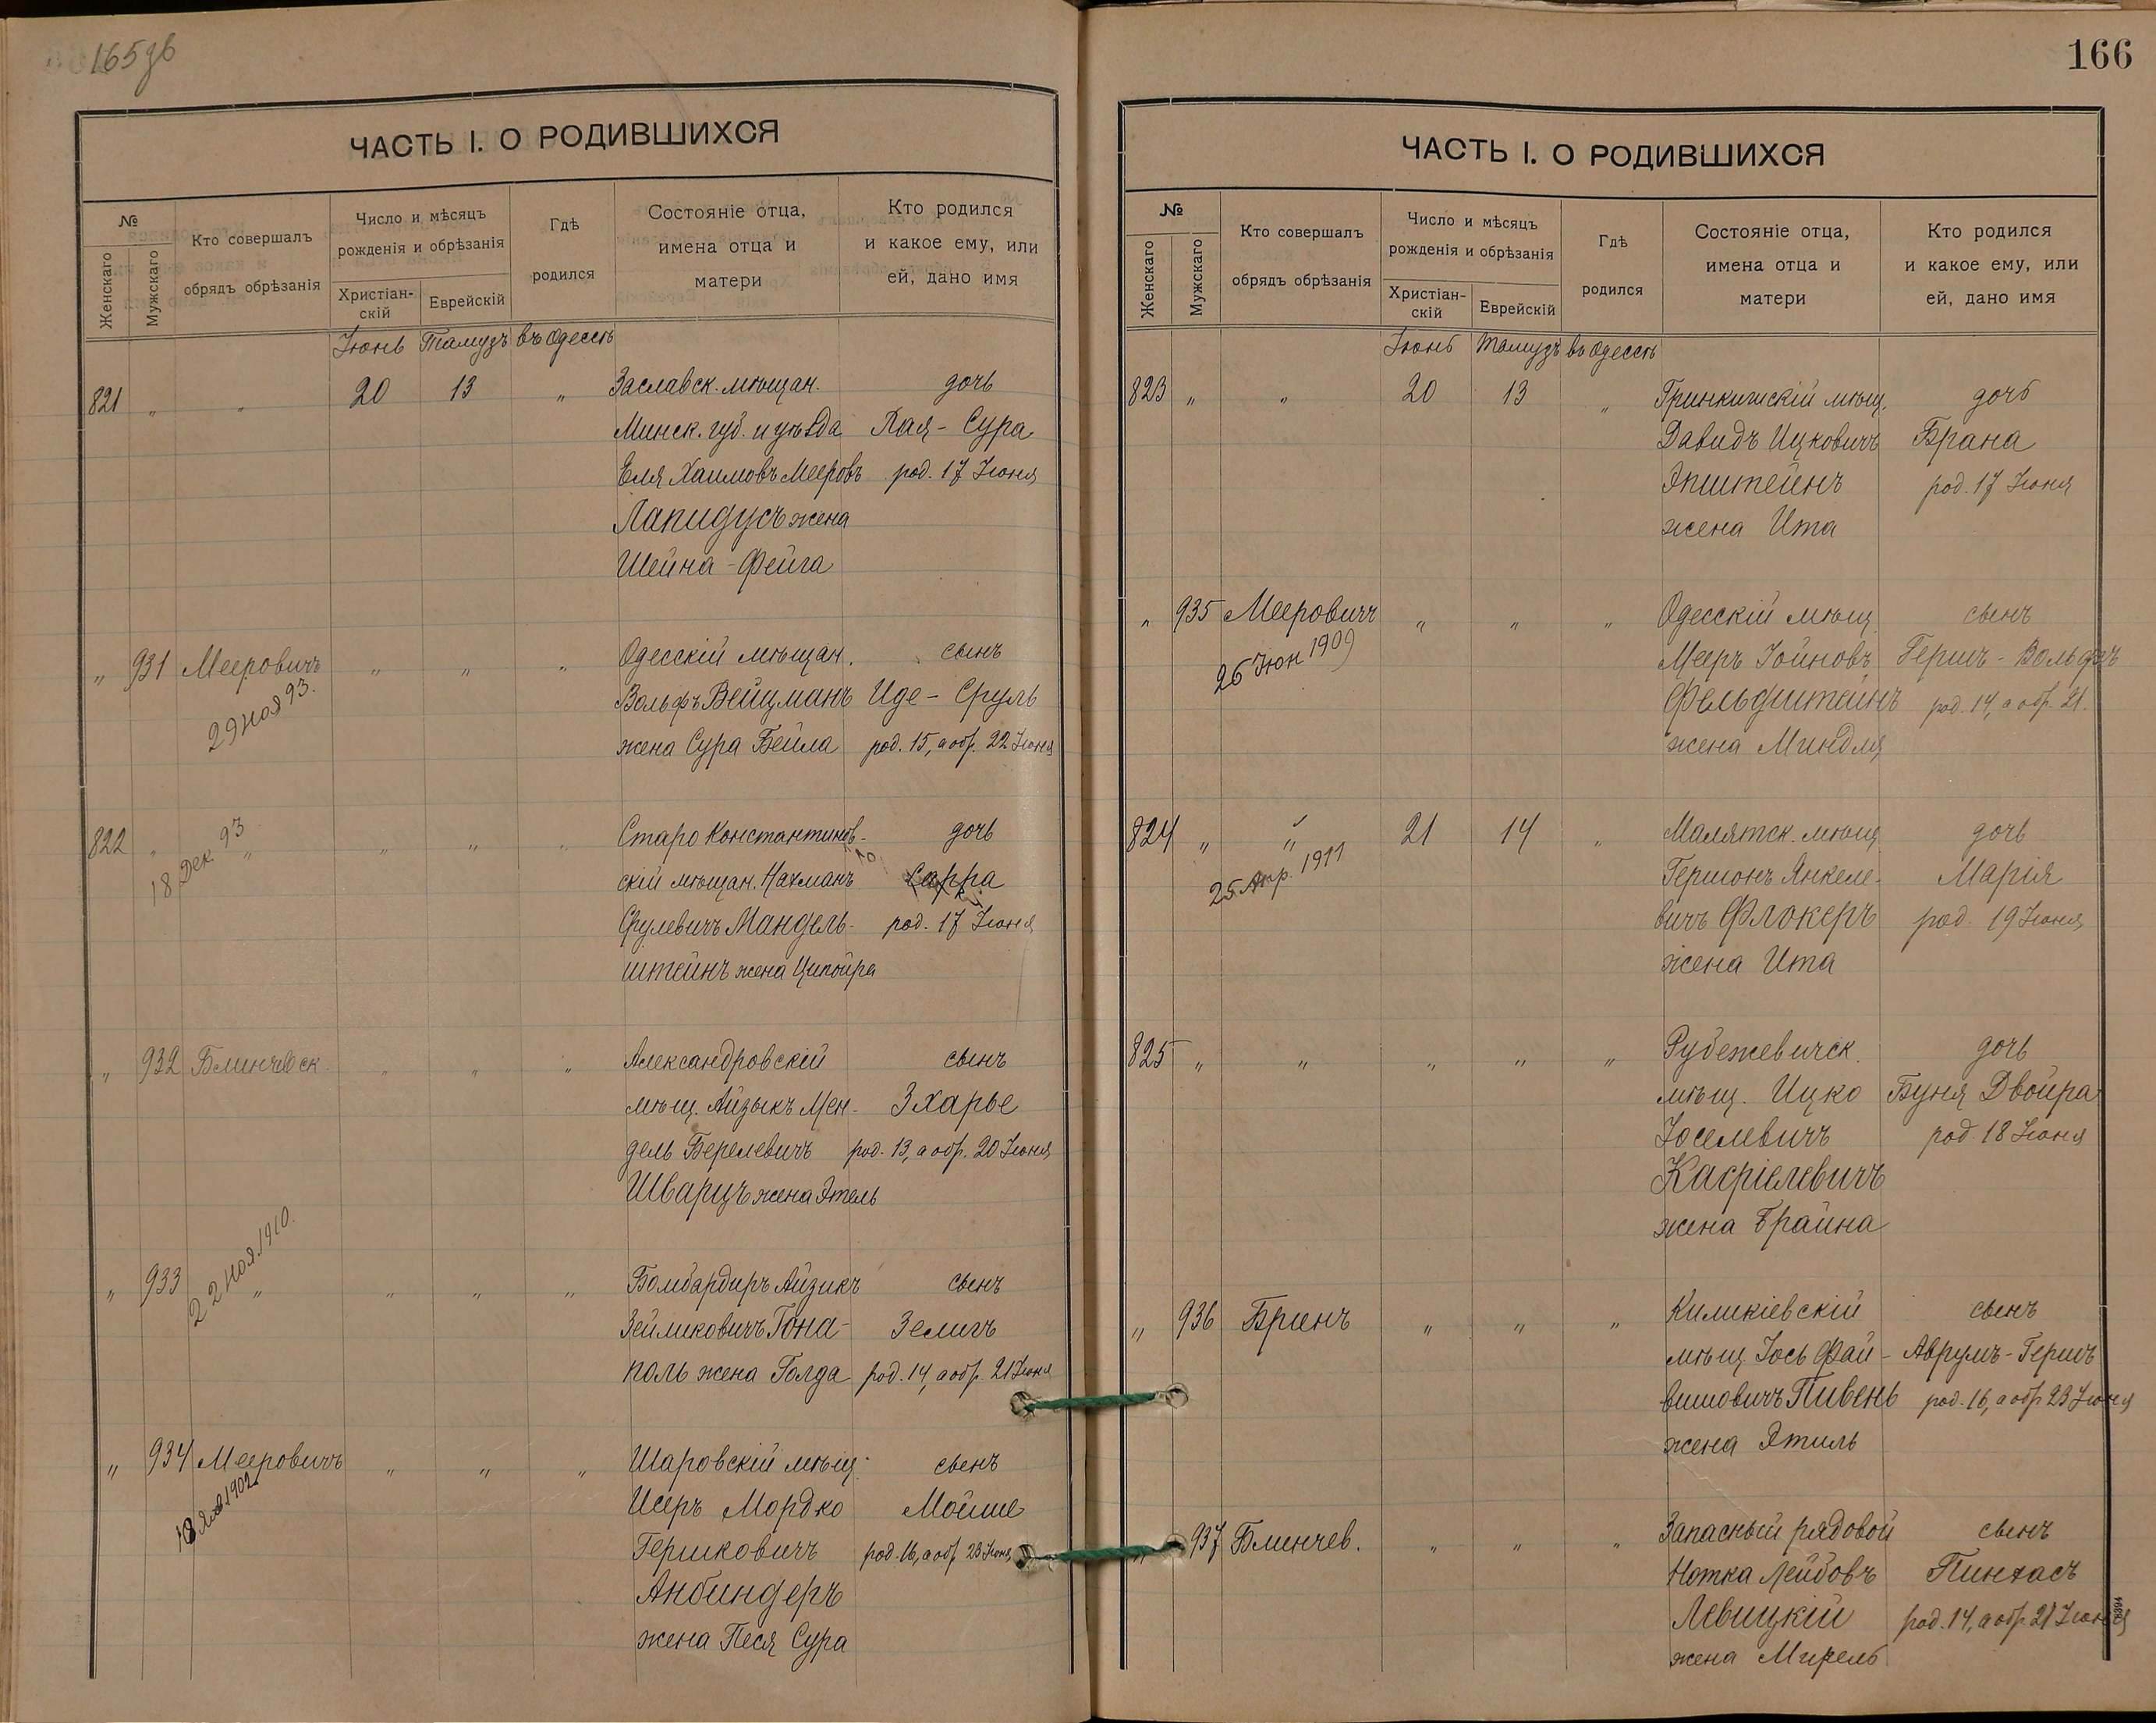 165об
ЧАСТЬ I. О РОДИВШИХСЯ
№
Женскаго
Мужскаго
Кто совершалъ
обрядъ обрѣзанія
Число и мѣсяцъ
рожденія и обрѣзанія
Христіан-
скій
Еврейскій
Гдѣ
родился
Состояніе отца,
имена отца и
матери
Кто родился
и какое ему, или
ей, дано имя
Іюнь Тамузъ въ Одессѣ
821 " " 20 13 " Заславск. мѣщан. дочь
Минск. губ. и уѣзда Лая - Сура
Еля Хаимовъ Мееровъ род. 17 Іюня
Лапидусъ жена
Шейна - Фейга
" 931 Мееровичъ " " " Одесскій мѣщан. сынъ
29 Ноя 93.
Вольфъ Вейцманъ Иде - Сруль
жена Сура Бейла род. 15, а обр. 22 Іюня
822 " " " " " Старо Константинов- дочь
18 Дек. 93
скій мѣщан. Нахманъ Сарра
Срулевичъ Мандель- род. 17 Іюня
штейнъ жена Ципойра
" 932 Блинчевск. " " " Александровскій сынъ
мѣщ. Айзыкъ Мен- Зхарье
дель Берелевичъ род. 13, а обр. 20 Іюня
Шварцъ жена Этель
" 933 " " " " Бомбардиръ Айзикъ сынъ
22 Ноя 1910.
Зейликовичъ Тона- Зелигъ
поль жена Голда род. 14, а обр. 21 Іюня
" 934 Мееровичъ " " " Шаровскій мѣщ. сынъ
1902
Исеръ Мордко Мойше
Гершковичъ род. 16, а обр. 23 Іюня
Анбиндеръ
жена Песя Сура
166
ЧАСТЬ I. О РОДИВШИХСЯ
№
Женскаго
Мужскаго
Кто совершалъ
обрядъ обрѣзанія
Число и мѣсяцъ
рожденія и обрѣзанія
Христіан-
скій
Еврейскій
Гдѣ
родился
Состояніе отца,
имена отца и
матери
Кто родился
и какое ему, или
ей, дано имя
Іюнь Тамузъ въ Одессѣ
823 " " 20 13 " Гринкишскій мѣщ. дочь
Давидъ Ицковичъ Брана
Эпштейнъ род. 17 Іюня
жена Ита
" 935 Мееровичъ " " " Одесскій мѣщ. сынъ
26 Юн 1909
Мееръ Іойновъ Гершъ - Вольфъ
Фельдштейнъ род. 14, а обр. 21.
жена Миндля
824 " " 21 14 " Малятск. мѣщ. дочь
25. Апр. 1911
Гершонъ Янкеле- Марія
вичъ Флокеръ род. 19 Іюня
жена Ита
825 " " " " " Рубежевичск. дочь
мѣщ. Ицко Буня Двойра
Іоселевичъ род. 18 Іюня
Касріелевичъ
жена Брайна
" 936 Бринъ " " " Киликіевскій сынъ
мѣщ. Іось Фай- Аврумъ - Гершъ
вишовичъ Пивень род. 16, а обр. 23 Іюня
жена Этиль
" 937 Блинчев. " " " Запасный рядовой сынъ
Нотка Лейбовъ Пинхасъ
Левицкій род. 14, а обр. 21 Іюня
жена Мирель